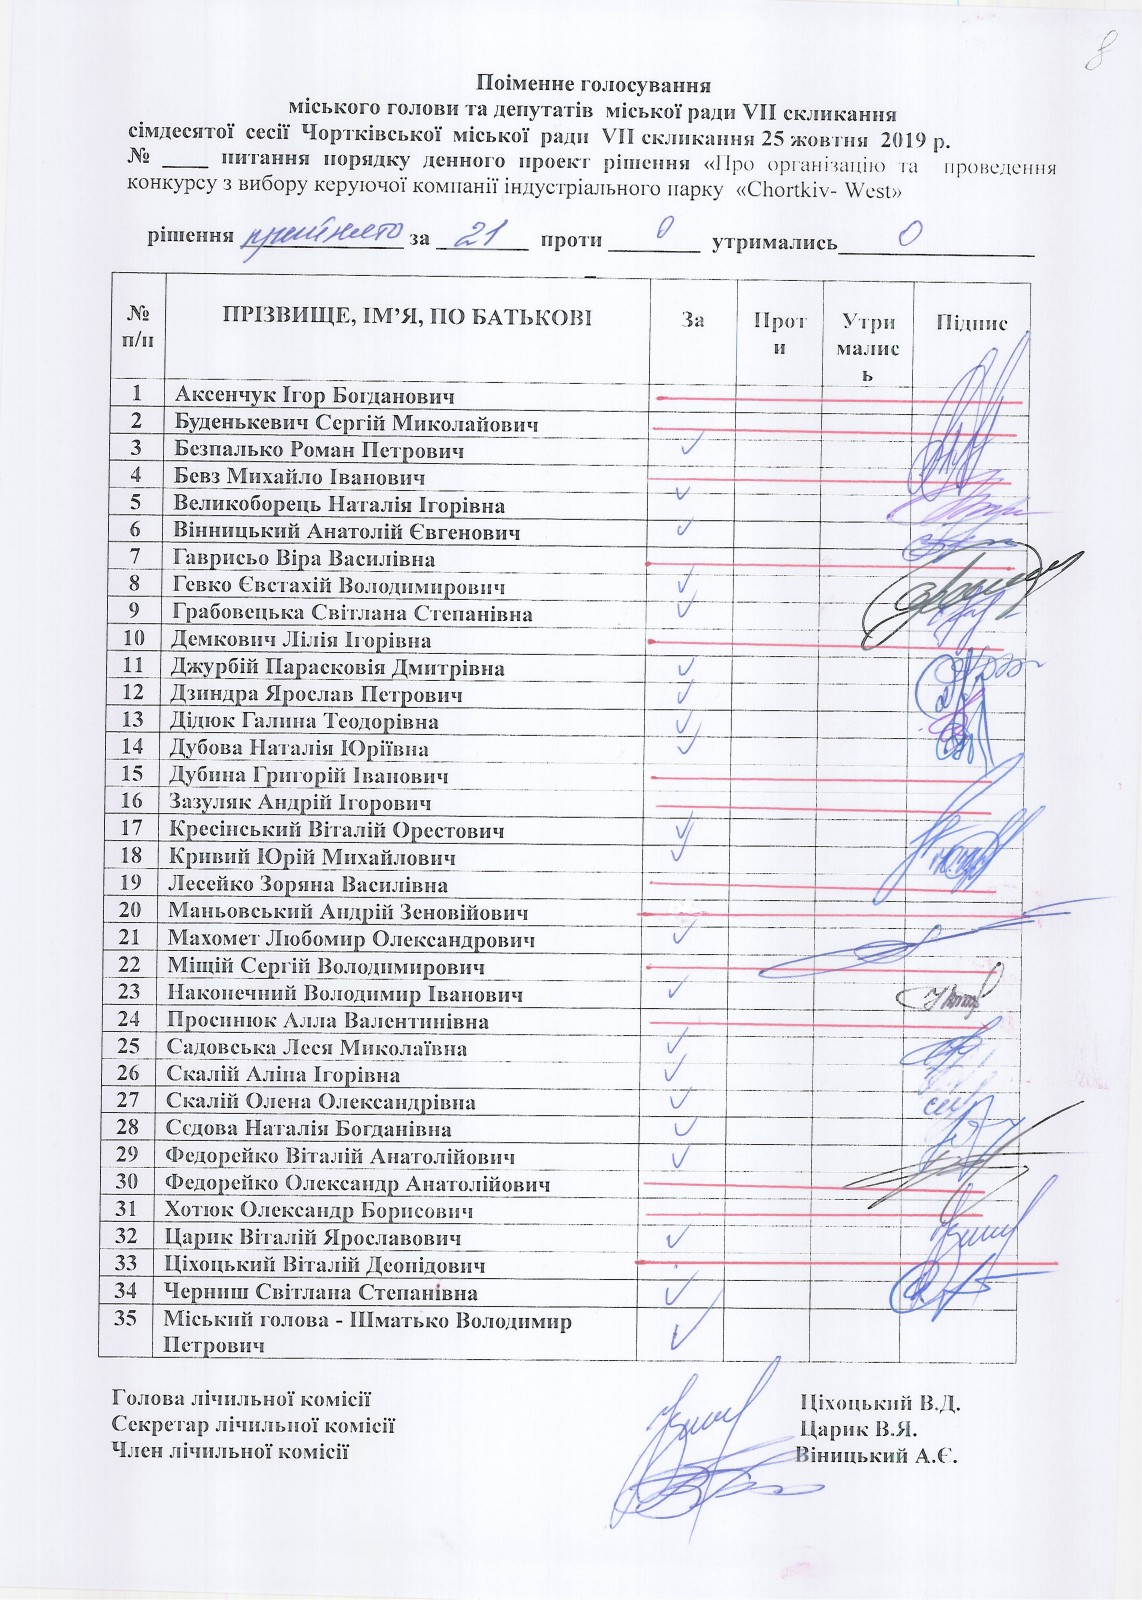 8
Поіменне голосування
міського голови та депутатів міської ради VII скликання
сімдесятої сесії Чортківської міської ради VII скликання 25 жовтня 2019 р.
№ ____ питання порядку денного проект рішення «Про організацію та проведення
конкурсу з вибору керуючої компанії індустріального парку «Chortkiv- West»
рішення прийнято за 21 проти 0 утримались 0
№ п/п ПРІЗВИЩЕ, ІМ’Я, ПО БАТЬКОВІ За Проти Утрималис ь Підпис
1 Аксенчук Ігор Богданович
2 Буденькевич Сергій Миколайович
3 Безпалько Роман Петрович ✓
4 Бевз Михайло Іванович
5 Великоборець Наталія Ігорівна ✓
6 Вінницький Анатолій Євгенович ✓
7 Гаврисьо Віра Василівна
8 Гевко Євстахій Володимирович ✓
9 Грабовецька Світлана Степанівна ✓
10 Демкович Лілія Ігорівна
11 Джурбій Парасковія Дмитрівна ✓
12 Дзиндра Ярослав Петрович ✓
13 Дідюк Галина Теодорівна ✓
14 Дубова Наталія Юріївна ✓
15 Дубина Григорій Іванович
16 Зазуляк Андрій Ігорович
17 Кресінський Віталій Орестович ✓
18 Кривий Юрій Михайлович ✓
19 Лесейко Зоряна Василівна
20 Маньовський Андрій Зеновійович
21 Махомет Любомир Олександрович ✓
22 Міщій Сергій Володимирович
23 Наконечний Володимир Іванович ✓
24 Просинюк Алла Валентинівна
25 Садовська Леся Миколаївна ✓
26 Скалій Аліна Ігорівна ✓
27 Скалій Олена Олександрівна ✓
28 Сєдова Наталія Богданівна ✓
29 Федорейко Віталій Анатолійович ✓
30 Федорейко Олександр Анатолійович
31 Хотюк Олександр Борисович
32 Царик Віталій Ярославович ✓
33 Ціхоцький Віталій Деонідович
34 Черниш Світлана Степанівна ✓
35 Міський голова - Шматько Володимир
Петрович ✓
Голова лічильної комісії Ціхоцький В.Д.
Секретар лічильної комісії Царик В.Я.
Член лічильної комісії Віницький А.Є.